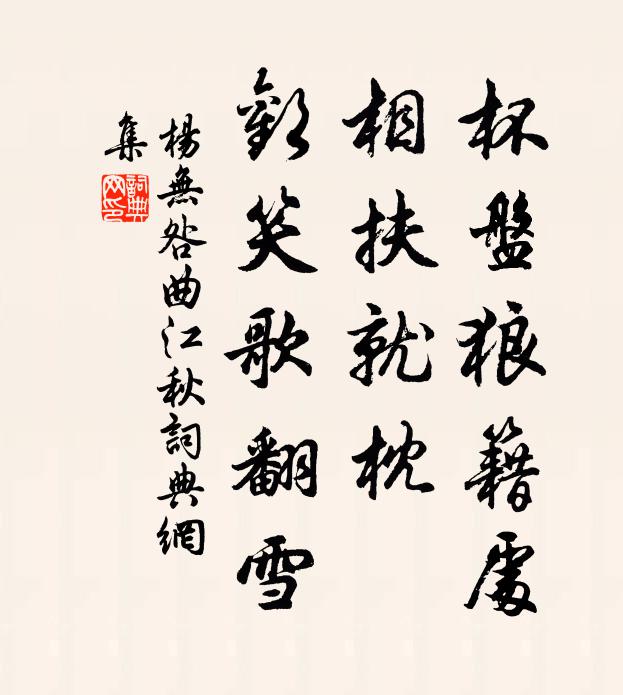 杯盤狼籍處
相扶就枕
歡笑歌翻雪
楊無咎曲江秋詞典網
集
詞典網印